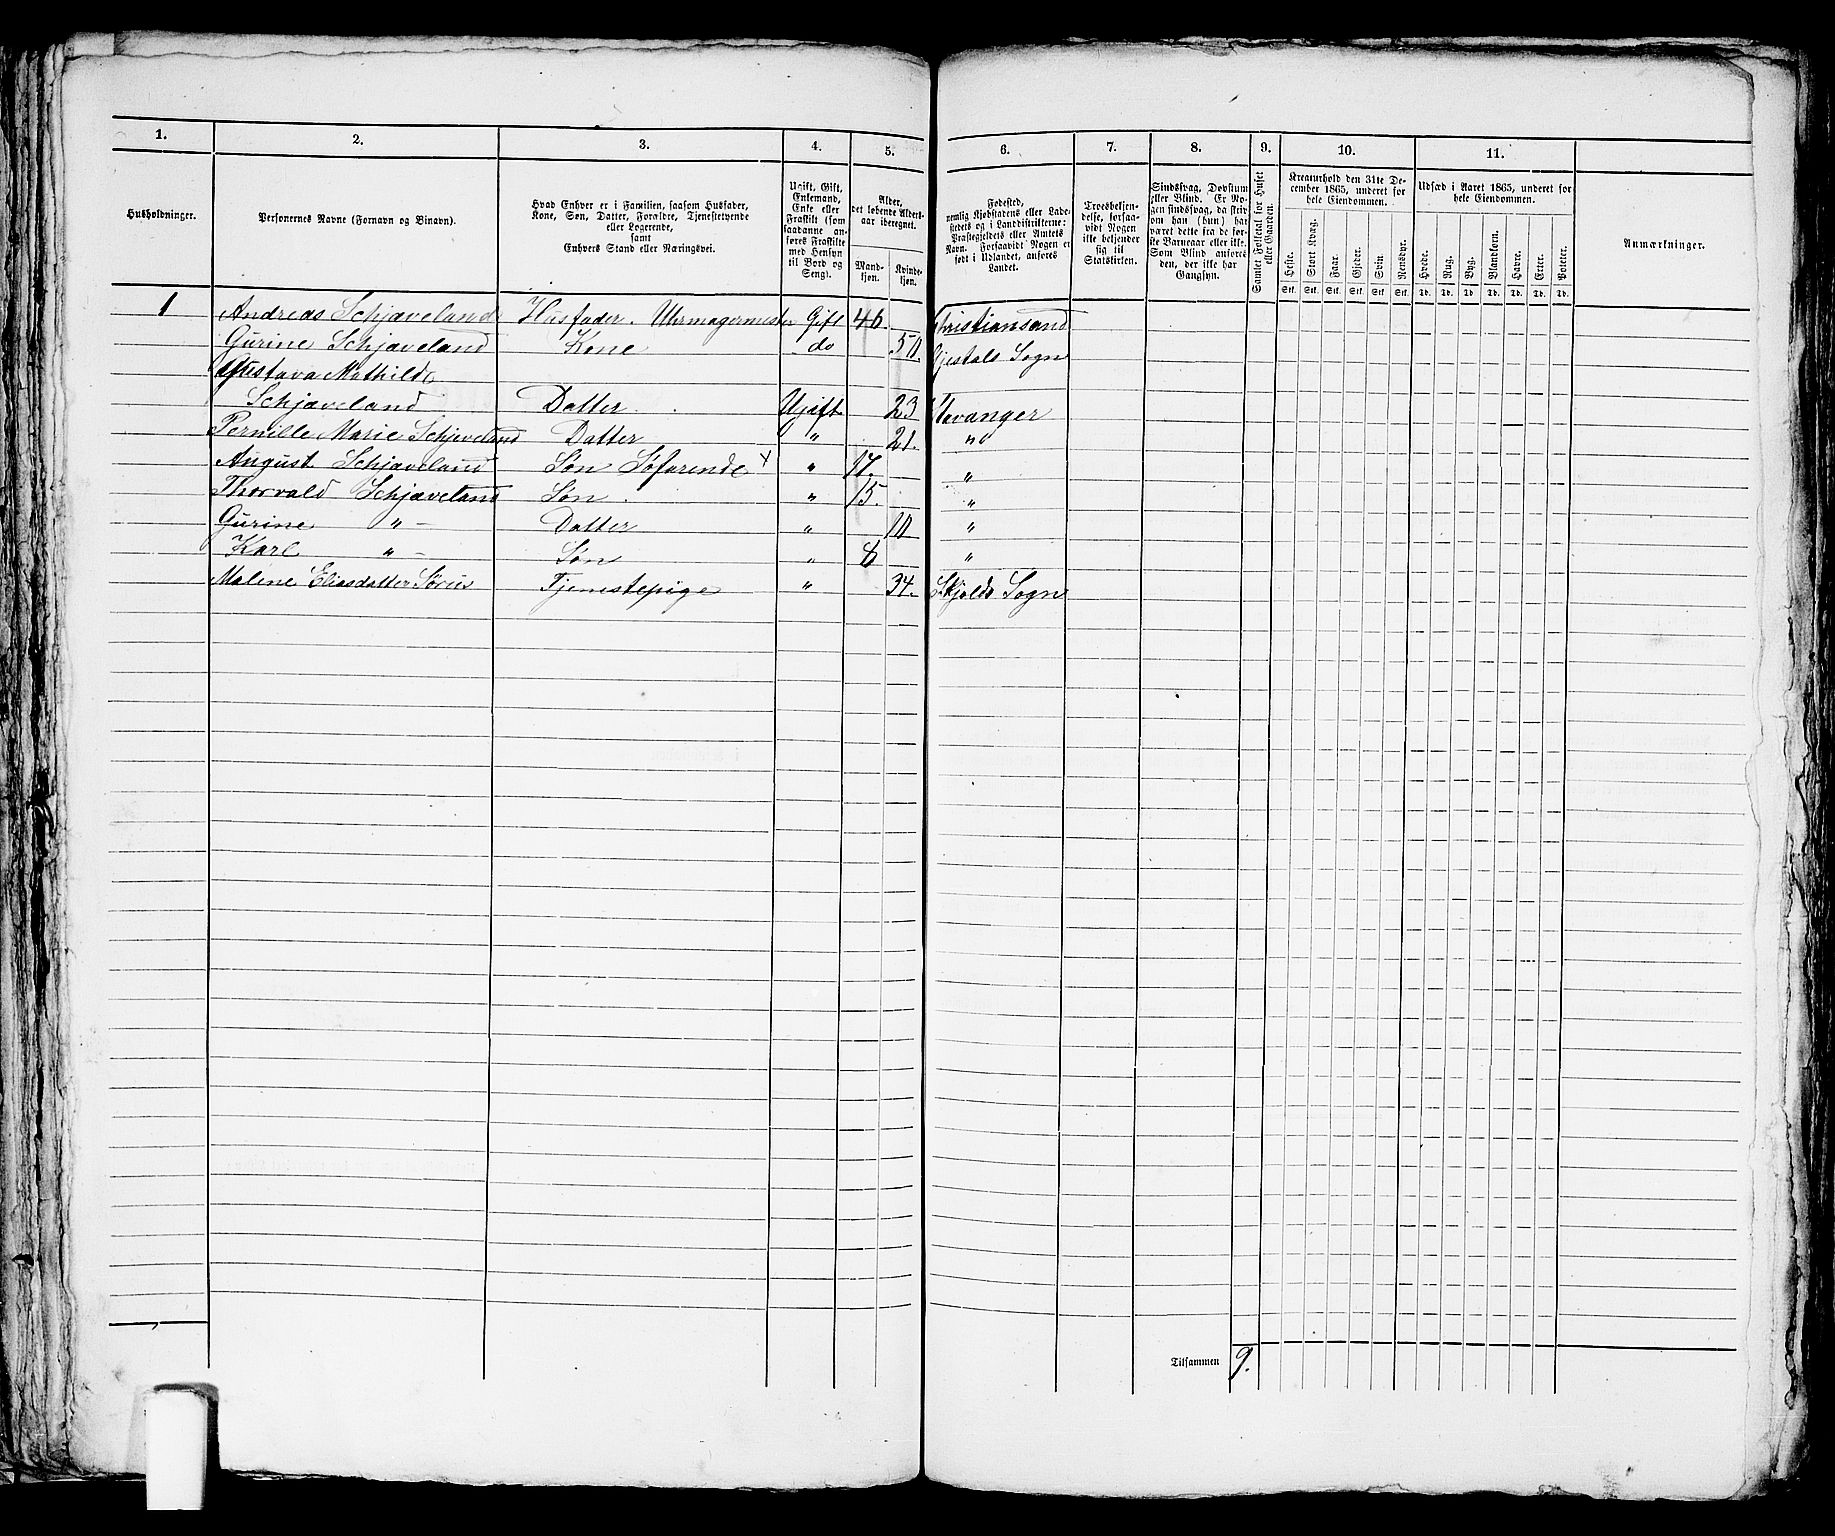 1. 2. 3. 4. 5. 6. 7. 8. 9. 10. 11.
Husholdninger.
Personernes Navne (Fornavn og Binavn).
Hvad Enhver er i Familien, saasom Husfader, Kone, Søn, Datter, Forældre, Tjenestetyende eller Logerende, samt Enhvers Stand eller Næringsvei.
Ugift, Gift, Enkemand, Enke eller Fraskilt (som saadanne anføres Fraskilte med Hensyn til Bord og Seng).
Alder, det løbende Aldersaar iberegnet.
Mandkjøn. Kvindekjøn.
Fødested, nemlig Kjøbstadens eller Ladestedets og i Landdistrikterne: Præstegjeldets eller Amtets Navn. Forsaavidt Nogen er født i Udlandet, anføres Landet.
Troesbekjendelse, forsaavidt Nogen ikke bekjender sig til Statskirken.
Sindssvag, Døvstum eller Blind. Er Nogen sindssvag, da skrives om han (hun) har været dette fra de første Barneaar eller ikke. Som Blind anføres den, der ikke har Gangsyn.
Samlet Folketal for Huset eller Gaarden.
Kreaturhold den 31te December 1865, underet for hele Eiendommen.
Heste. Stort Kvæg. Faar. Gjeder. Svin. Rensdyr.
Stk. Stk. Stk. Stk. Stk. Stk.
Udsæd i Aaret 1865, underet for hele Eiendommen.
Hvede. Rug. Byg. Blandkorn. Havre. Erter. Poteter.
Td. Td. Td. Td. Td. Td. Td.
Anmærkninger.
1 Andreas Schjæveland Husfader. Uhrmagermester Gift 46. Christiansand
Gurine Schjæveland Kone do 50. Gjestals Sogn
Gustava Mathilde
Schjæveland Datter. Ugift 23 Stavanger
Pernille Marie Schjeveland Datter " 21. "
August Schjæveland Søn Søfarende " 17. "
Thorvald Schjæveland Søn. " 15. "
Gurine " – Datter " 10 "
Karl " – Søn " 8 "
Malene Eliasdatter Tjenestepige " 34. Skjolds Sogn
Tilsammen 9.